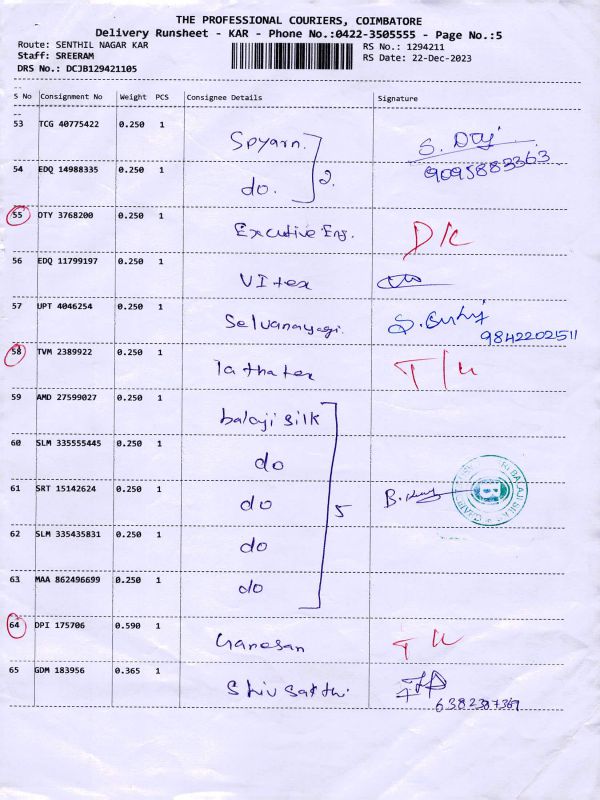 THE PROFESSIONAL COURIERS, COIMBATORE
Delivery Runsheet - KAR - Phone No.:0422-3505555 - Page No.:5
Route: SENTHIL NAGAR KAR RS No.: 1294211
Staff: SREERAM RS Date: 22-Dec-2023
DRS No.: DCJB129421105
S No Consignment No Weight PCS Consignee Details Signature
53 TCG 40775422 0.250 1 Spyarn. S.
54 EDQ 14988335 0.250 1 do. 2. 9095883363
55 DTY 3768200 0.250 1 Executive Eng. D/L
56 EDQ 11799197 0.250 1 VItex
57 UPT 4046254 0.250 1 Selvanayagi. 9842202511
58 TVM 2389922 0.250 1 lathatex
59 AMD 27599027 0.250 1 balaji silk
60 SLM 335555445 0.250 1 do
61 SRT 15142624 0.250 1 do 5 B.
62 SLM 335435831 0.250 1 do
63 MAA 862496699 0.250 1 do
64 DPI 175706 0.590 1 Ganesan
65 GDM 183956 0.365 1 Shiv sakthi. 6382387369